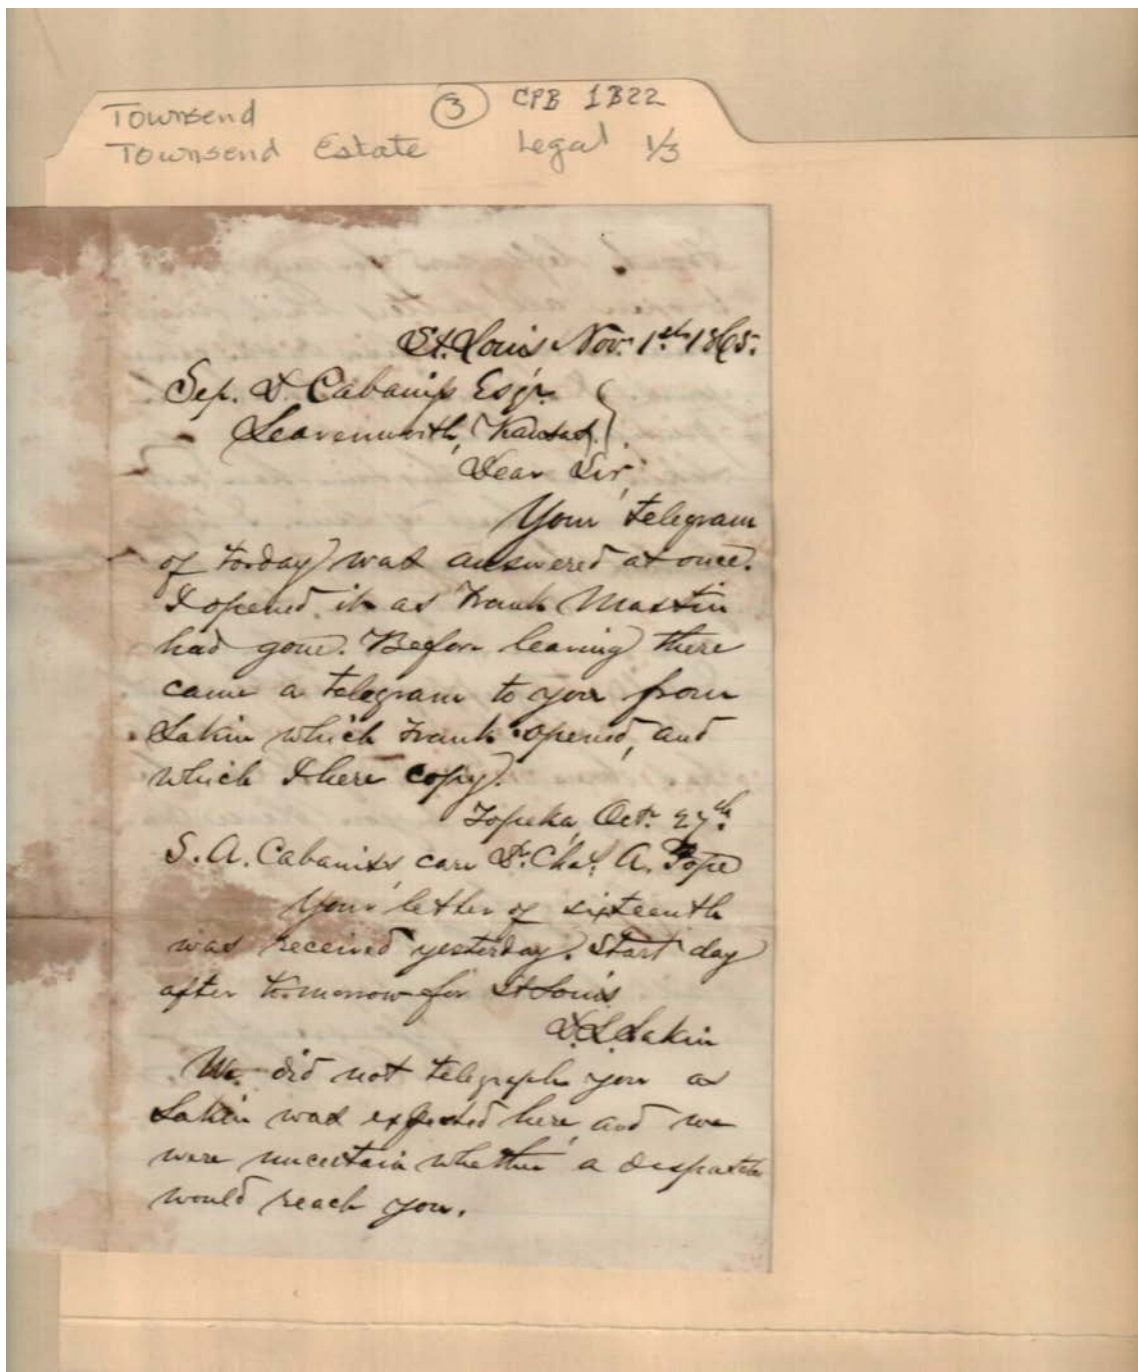 Townsend ③ CPB 1B22
Townsend Estate Legal 1/3
St. Louis Nov. 1st 1865.
Sep. D. Cabaniss Esqr.
Leavenworth, Kansas.
Dear Sir,
Your telegram
of to-day was answered at once.
I opened it as Frank Mastin
had gone. Before leaving there
came a telegram to you from
Lakin which Frank opened, and
which I here copy.
Topeka, Oct. 27th.
S. A. Cabaniss, care Dr. Chas. A. Pope
Your letter of sixteenth
was received yesterday. Start day
after to-morrow for St Louis
D. L. Lakin
We did not telegraph you as
Lakin was expected here, and we
were uncertain whether a despatch
would reach you.